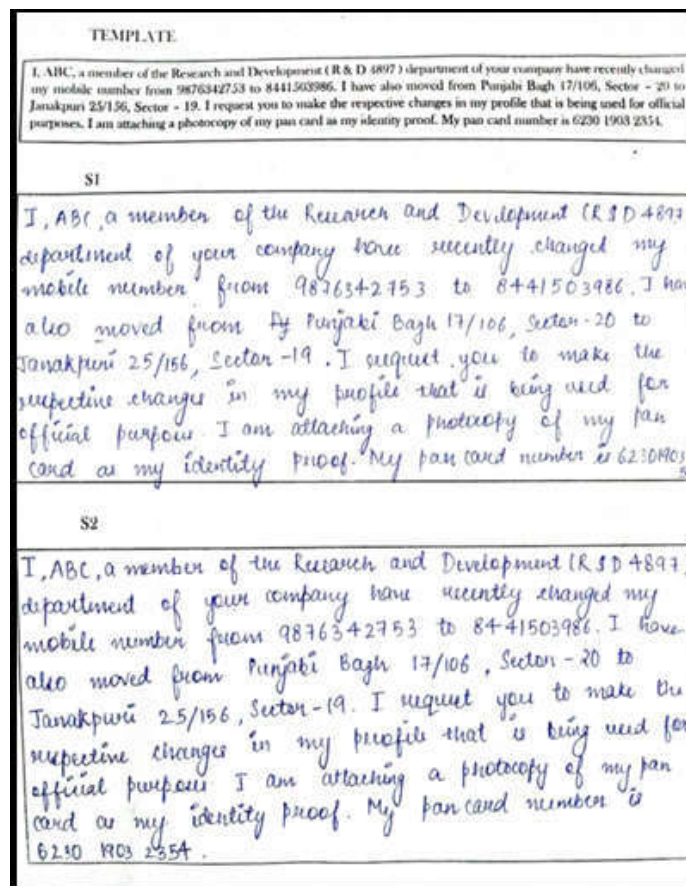 TEMPLATE
I, ABC, a member of the Research and Development ( R & D 4897 ) department of your company have recently changed
my mobile number from 9876342753 to 8441503986. I have also moved from Punjabi Bagh 17/106, Sector - 20 to
Janakpuri 25/156, Sector - 19. I request you to make the respective changes in my profile that is being used for official
purposes. I am attaching a photocopy of my pan card as my identity proof. My pan card number is 6230 1903 2354.
S1
I, ABC, a member of the Research and Development (R & D 4897
department of your company have recently changed my
mobile number from 9876342753 to 8441503986. I hav
also moved from Punjabi Bagh 17/106, Sector-20 to
Janakpuri 25/156, Sector -19. I request you to make the
respective changes in my profile that is being used for
official purpose. I am attaching a photocopy of my pan
card as my identity proof. My pan card number is 62301903
S2
I, ABC, a member of the Research and Development (R & D 4897)
department of your company have recently changed my
mobile number from 9876342753 to 8441503986. I have
also moved from Punjabi Bagh 17/106, Sector - 20 to
Janakpuri 25/156, Sector-19. I request you to make the
respective changes in my profile that is being used for
official purpose I am attaching a photocopy of my pan
card as my identity proof. My pan card number is
6230 1903 2354.